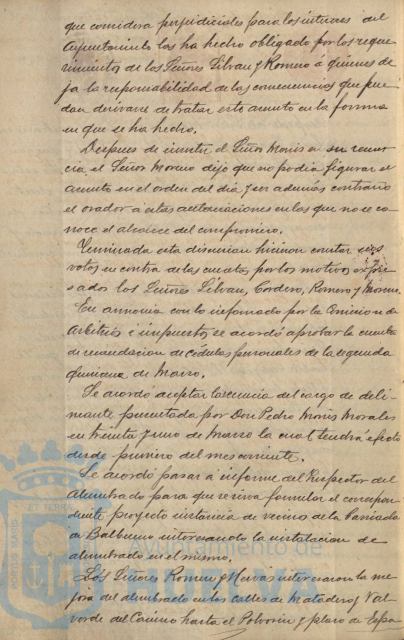 que considera perjudiciales para los intereses del
Ayuntamiento los ha hecho obligado por los reque
rimientos de los Señores Silvan y Romero á quienes de
ja la responsabilidad de las consecuencias que pue
dan derivarse de tratar este asunto en la forma
en que se ha hecho.
Despues de insistir el Señor Morís en su renun
cia el Señor Moreno dijo que no podia figurar el
asunto en el orden del dia y ser además contrario
el orador á estas autorizaciones en las que no se co
noce el alcance del compromiso.
Terminada esta discusion hicieron constar sus
votos en contra de las cuentas por los motivos expre
sados los Señores Silvan, Cordero, Romero y Moreno.
En armonia con lo informado por la Comision de
Arbitrios é impuestos se acordó aprobar la cuenta
de recaudacion de cédulas personales de la segunda
quincena de Marzo.
Se acordó aceptar la renuncia del cargo de deli
neante presentada por Don Pedro Morís Morales
en treinta y uno de Marzo la cual tendrá efecto
desde primero del mes corriente.
Se acordó pasar á informe del Inspector del
Alumbrado para que se sirva formular el correspon
diente proyecto instancia de vecinos de la Barriada
de Balbueno interesando la instalacion de
alumbrado en el mismo.
Los Señores Romero y Navas interesaron la me
jora del alumbrado en las calles de Matadero y Val
verde del Camino hasta el Polvorin y plaza de Espa
Ayuntamiento de
PORTUS MARIS ET TERRAE